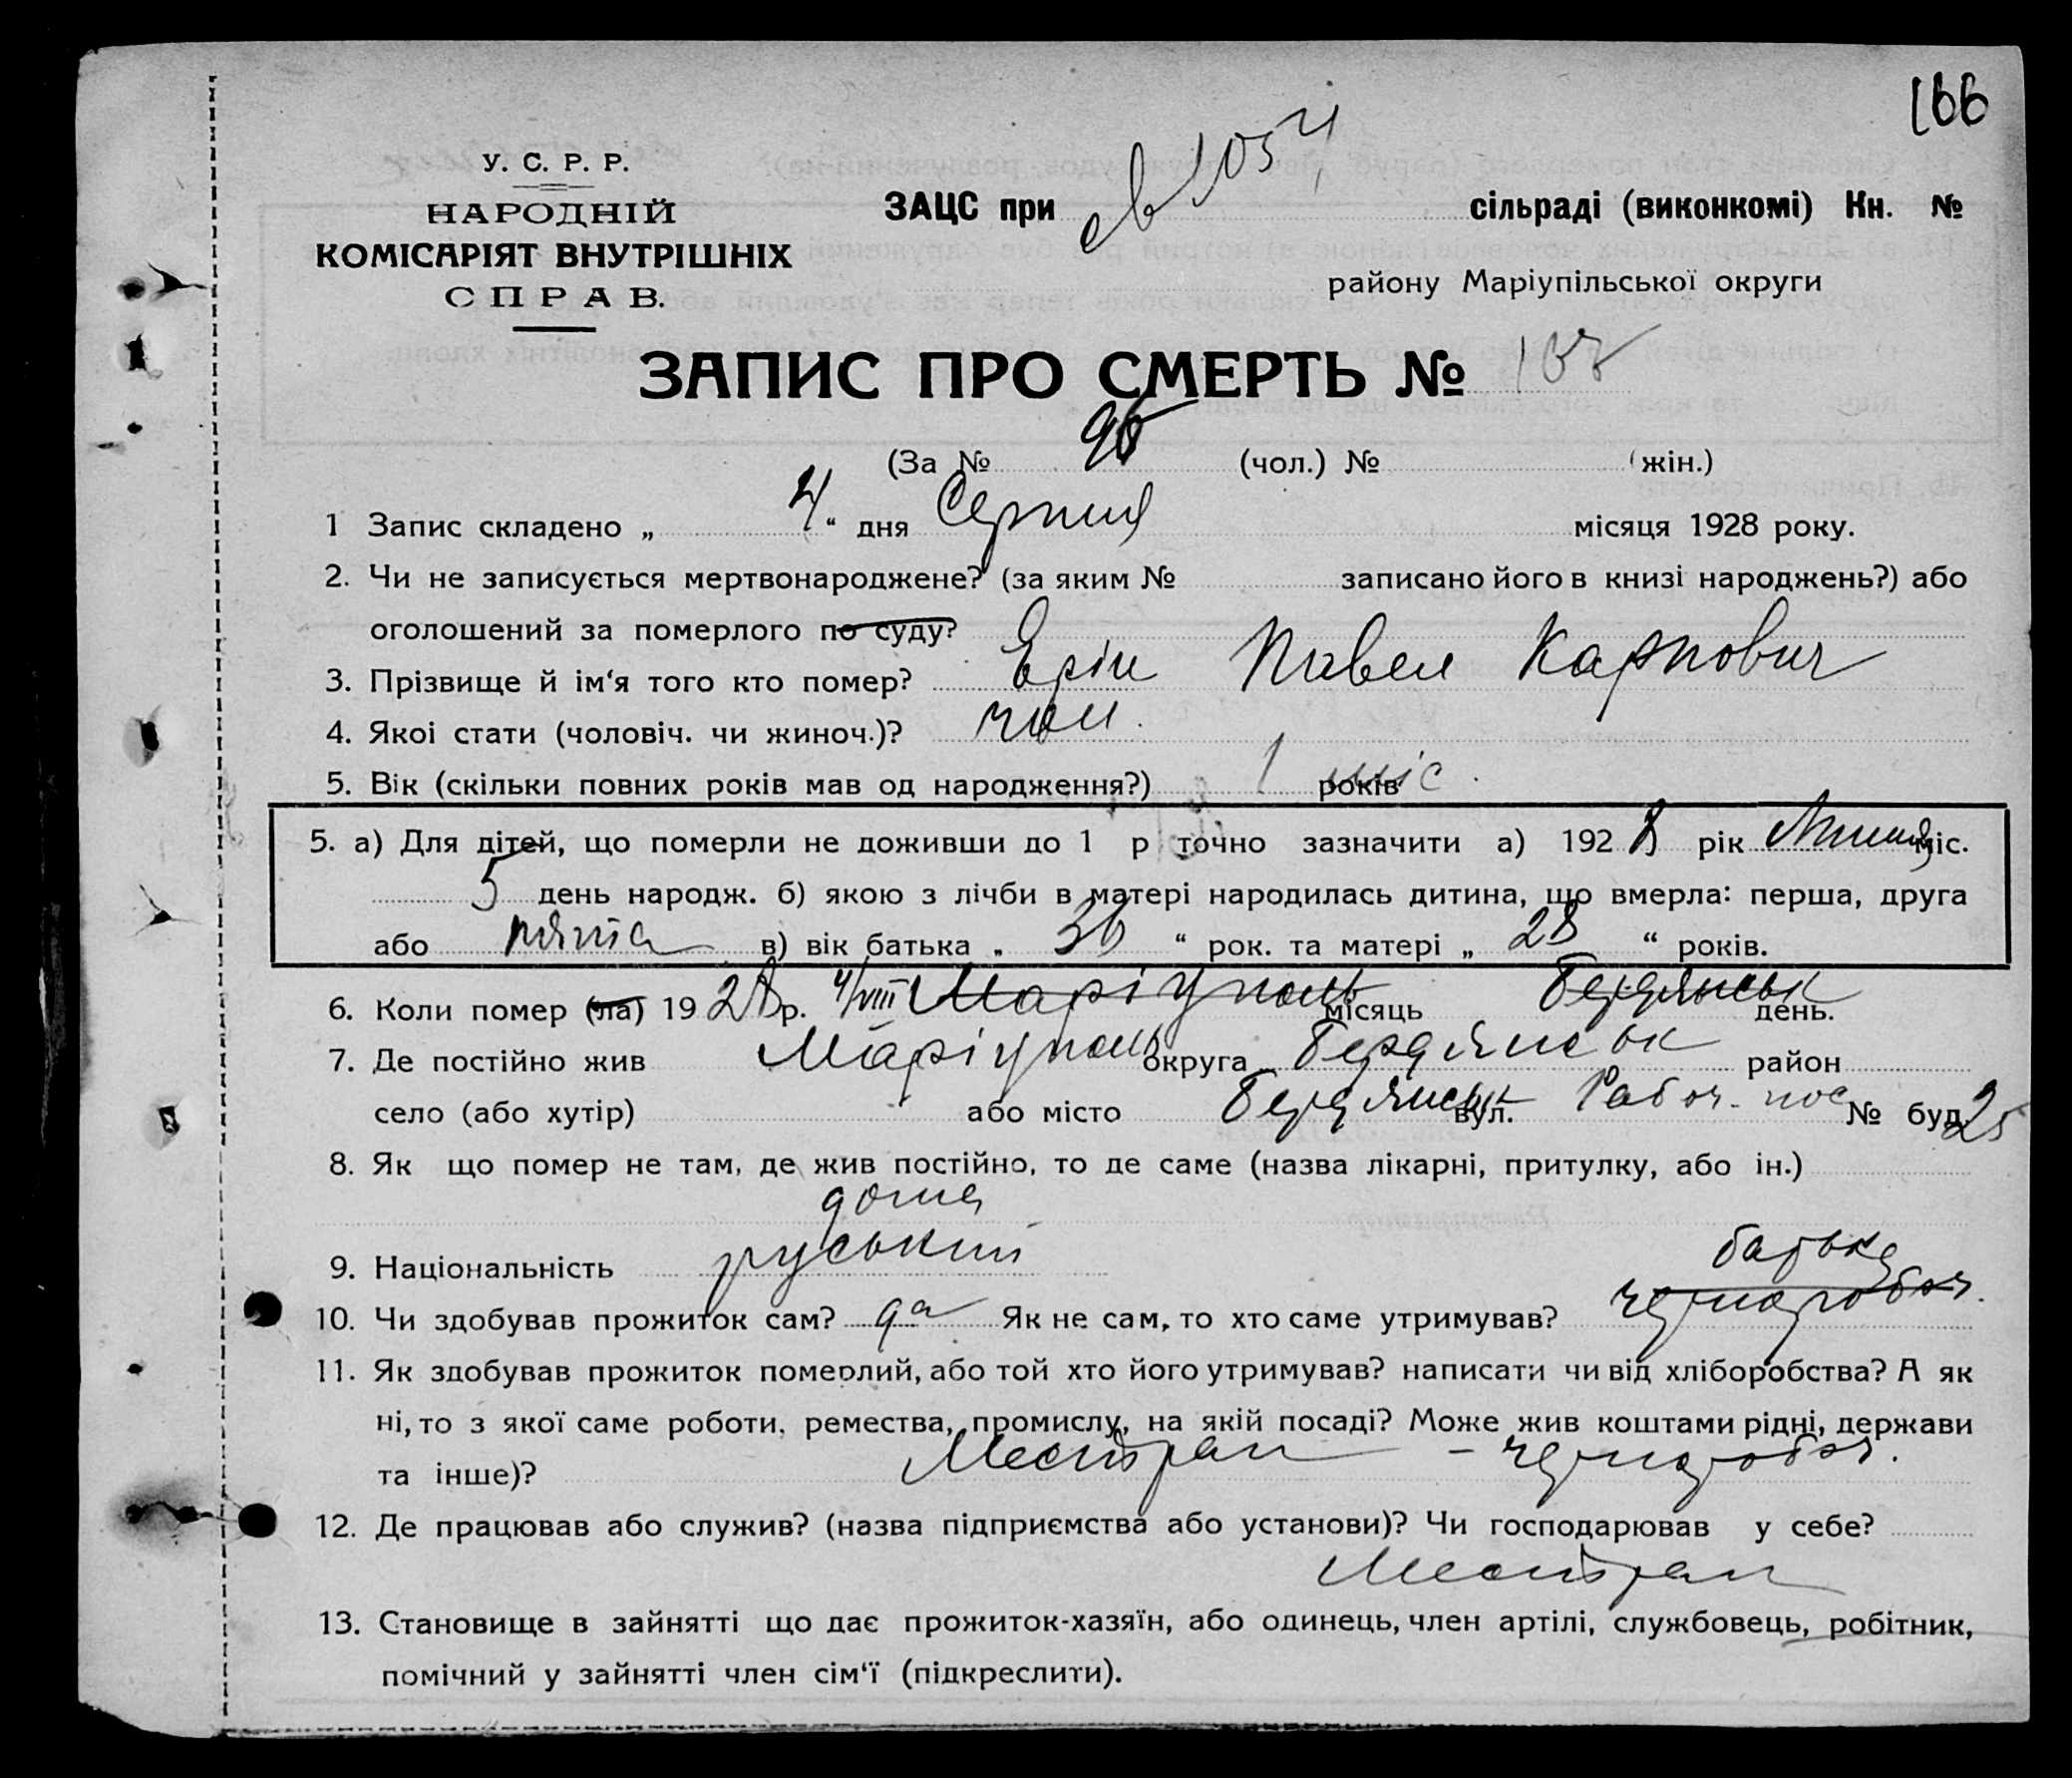 166
У. С. Р. Р.
НАРОДНІЙ
КОМІСАРІЯТ ВНУТРІШНІХ
СПРАВ.
ЗАЦС при св 1054 сільраді (виконкомі) Кн. №
району Маріупільської округи
ЗАПИС ПРО СМЕРТЬ №
(За № 96 (чол.) № (жін.)
1 Запис складено „ 4 “ дня Серпня місяця 1928 року.
2. Чи не записується мертвонароджене? (за яким № записано його в книзі народжень?) або
оголошений за померлого по суду?
3. Прізвище й ім‘я того кто помер? Ерін Павел Карпович
4. Якоі стати (чоловіч. чи жиноч.)? чол.
5. Вік (скільки повних років мав од народження?) 1 років міс.
5. а) Для дітей, що померли не доживши до 1 р точно зазначити а) 1928 рік Липня міс.
5 день народж. б) якою з лічби в матері народилась дитина, що вмерла: перша, друга
або пята в) вік батька „ 30 “ рок. та матері „ 28 “ років.
6. Коли помер (ла) 1928 р. 4/VIII Маріуполь місяць Бердянськ день.
7. Де постійно жив Маріуполь округа Бердянськ район
село (або хутір) або місто Бердянськ вул. Рабоч. пос № буд. 25
8. Як що помер не там, де жив постійно, то де саме (назва лікарні, притулку, або ін.)
дома
9. Національність руський
батька
10. Чи здобував прожиток сам? да Як не сам, то хто саме утримував? чернороботч.
11. Як здобував прожиток померлий, або той хто його утримував? написати чи від хліборобства? А як
ні, то з якої саме роботи, ремества, промислу, на якій посаді? Може жив коштами рідні, держави
та інше)? Местран - чернороб.
12. Де працював або служив? (назва підприємства або установи)? Чи господарював у себе?
Местран
13. Становище в зайнятті що дає прожиток-хазяїн, або одинець, член артілі, службовець, робітник,
помічний у зайнятті член сім‘ї (підкреслити).